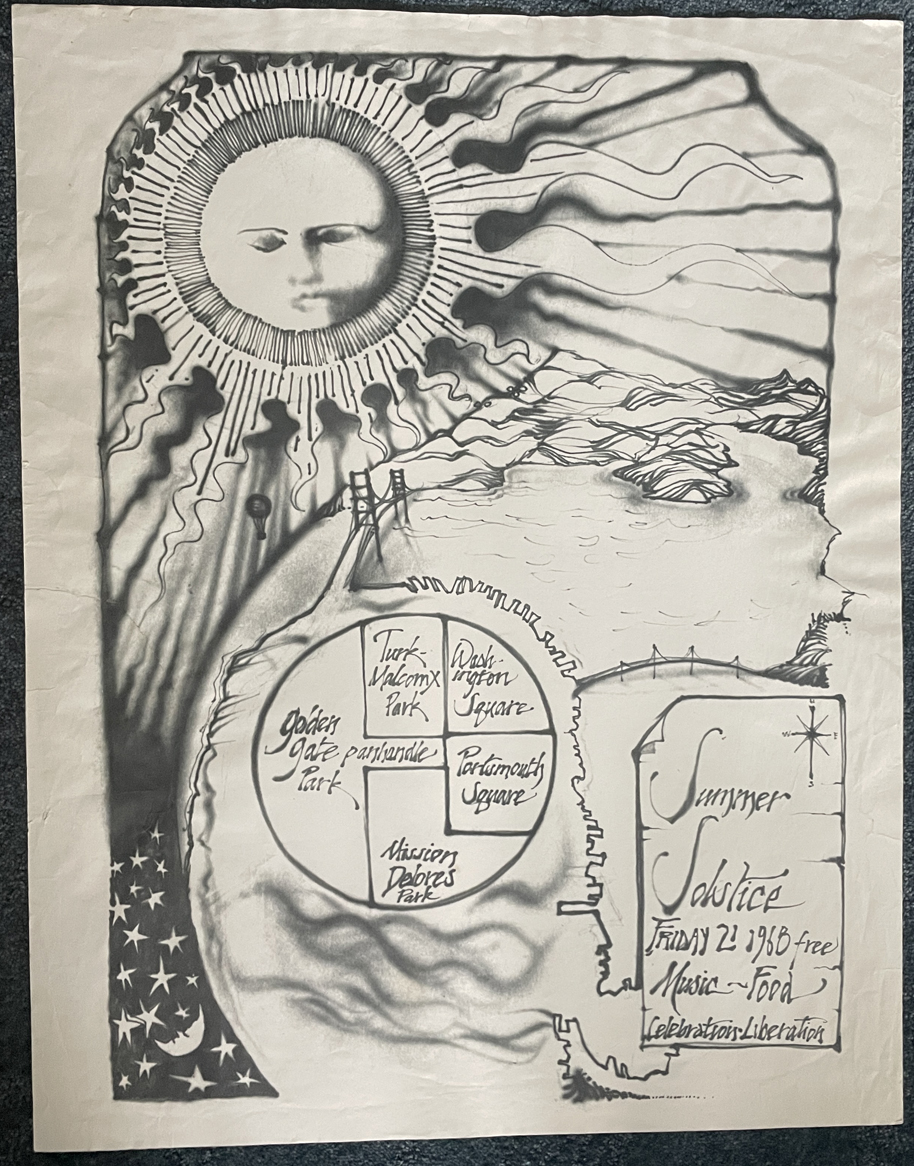 Turk-
MalcomX
Park
Wash-
ington
Square
golden
gate panhandle
Park
Portsmouth
Square
Mission
Delores
Park
W
Summer
Solstice
FRIDAY 21 1968 free
Music ~ Food
Celebration·Liberation